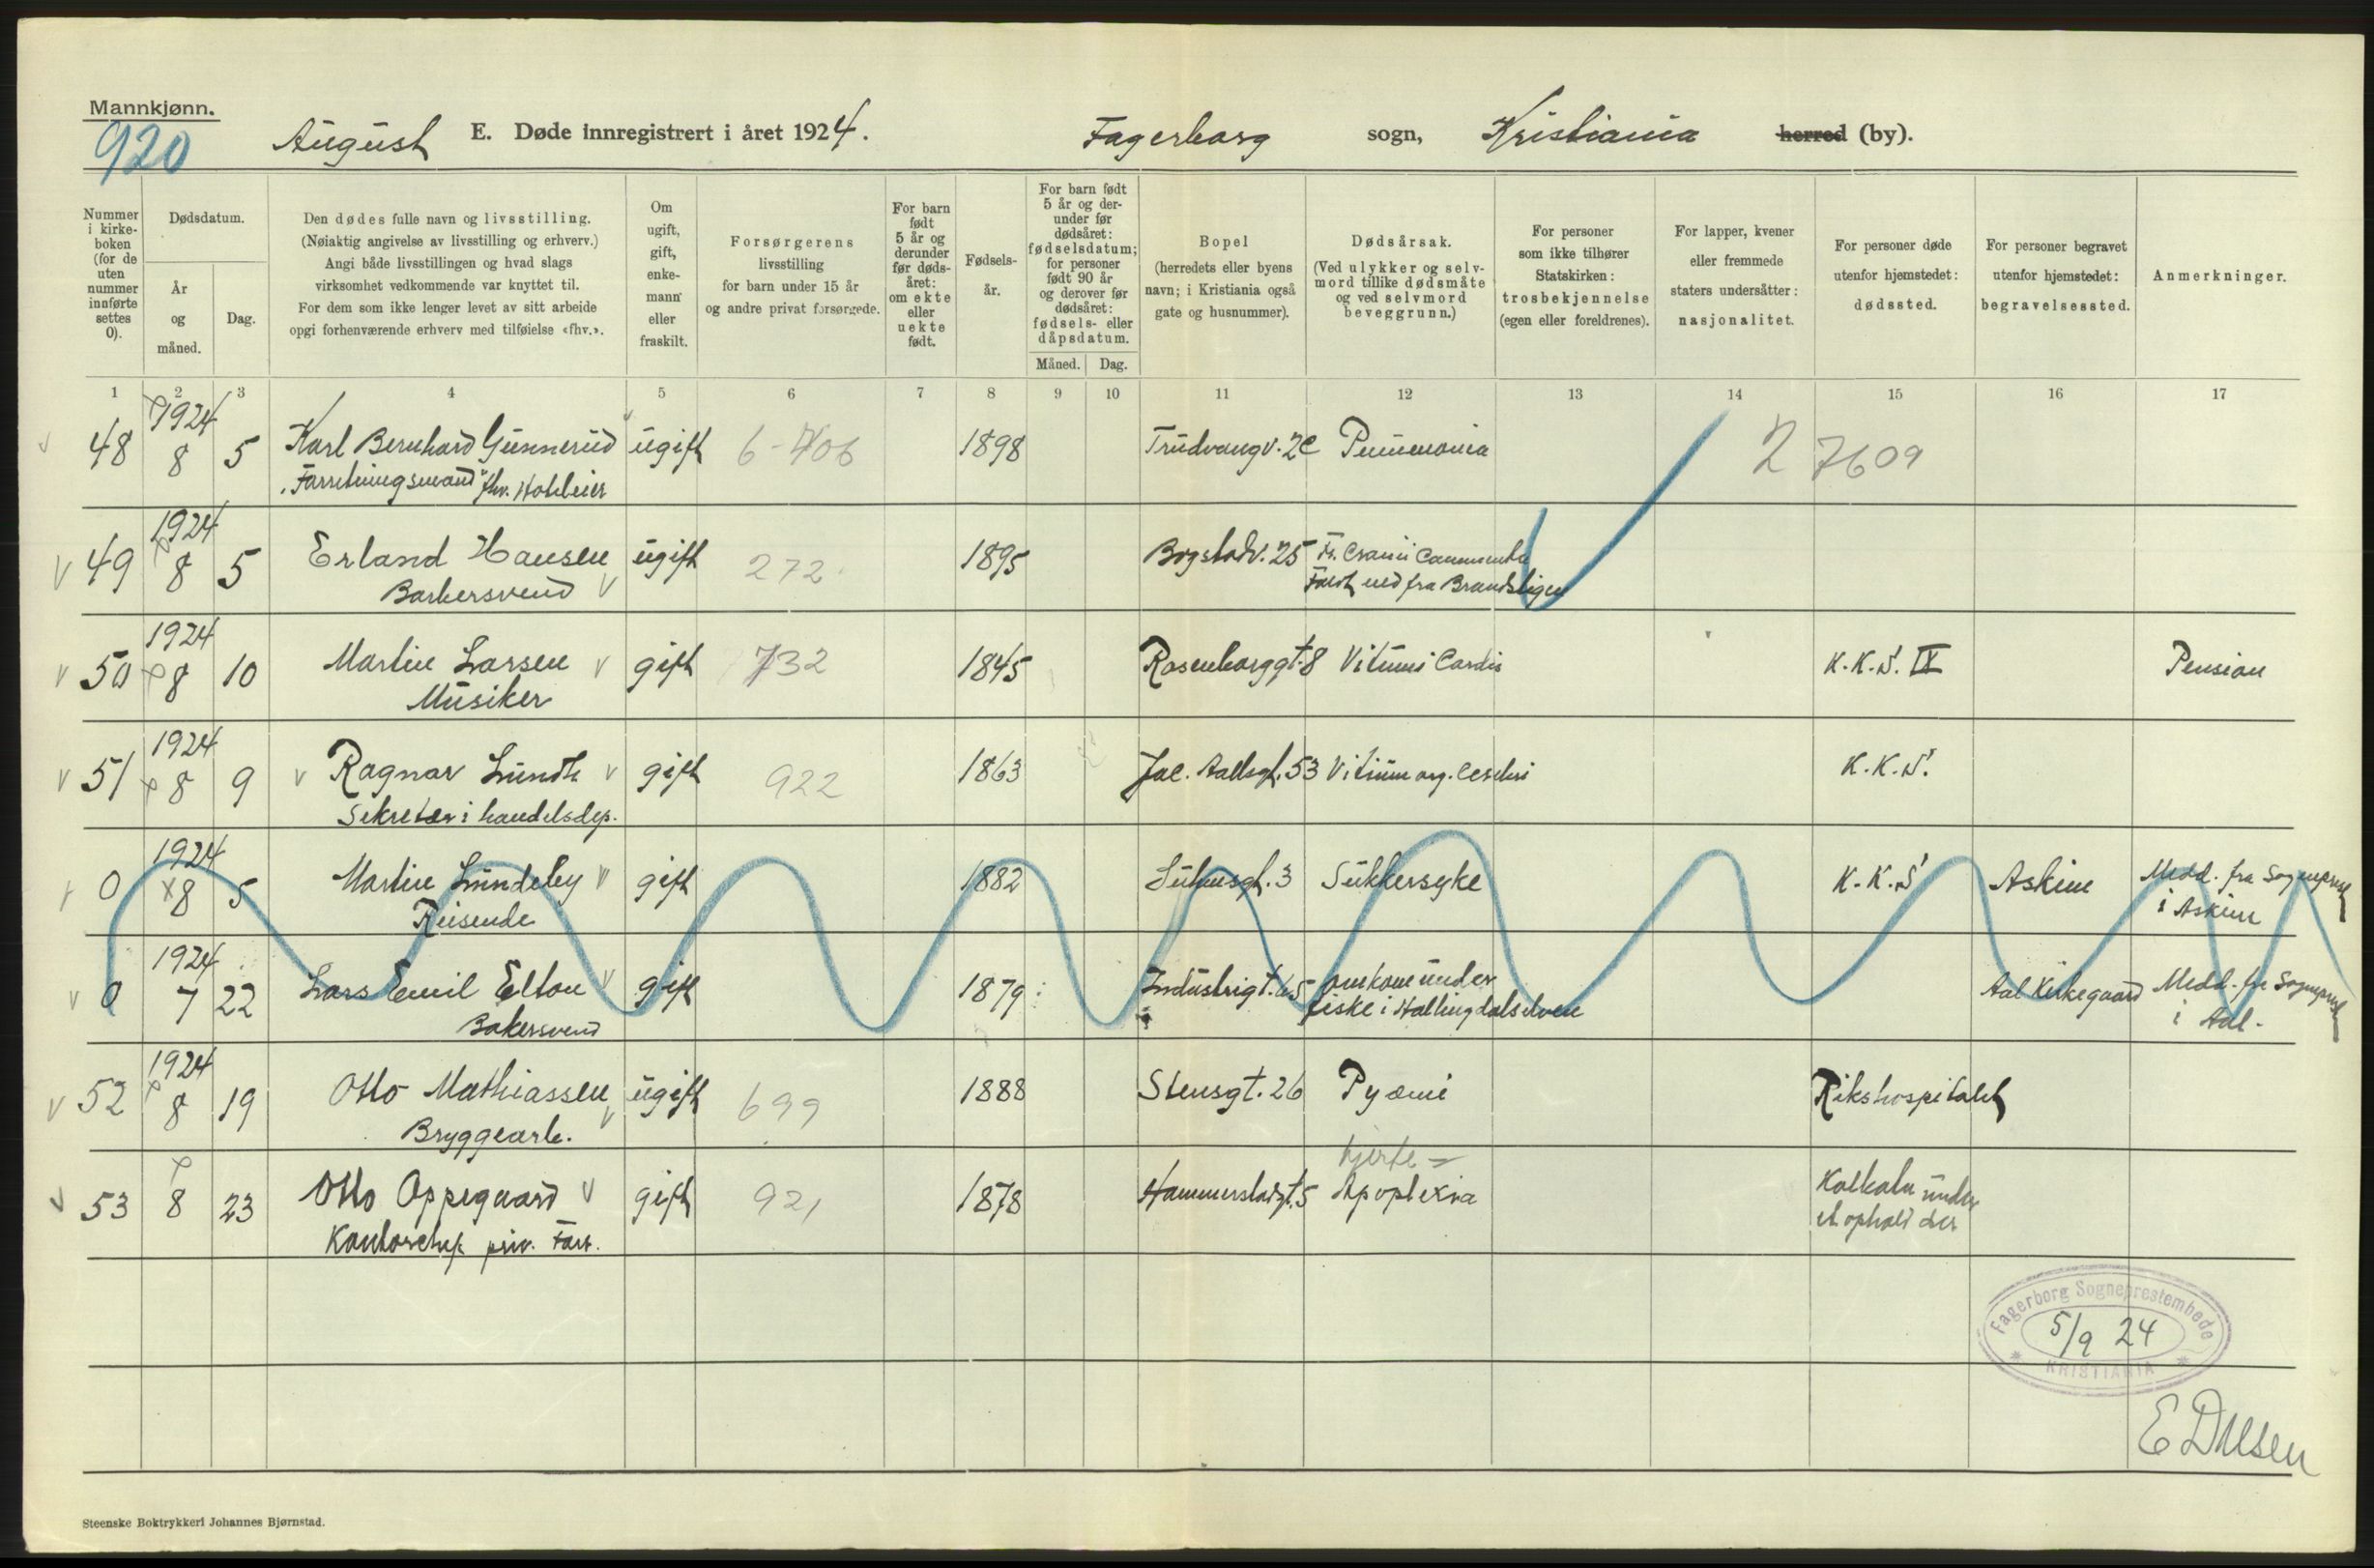 Mannkjønn.
920
August E. Døde innregistrert i året 1924. Fagerborg sogn, Kristiania herred (by).
Nummer i kirke-boken (for de uten nummer innførte settes 0).
Dødsdatum.
År og måned.
Dag.
Den dødes fulle navn og livsstilling.
(Nøiaktig angivelse av livsstilling og erhverv.)
Angi både livsstillingen og hvad slags
virksomhet vedkommende var knyttet til.
For dem som ikke lenger levet av sitt arbeide
opgi forhenværende erhverv med tilføielse «fhv.».
Om ugift, gift, enke-mann eller fraskilt.
Forsørgerens
livsstilling
for barn under 15 år
og andre privat forsørgede.
For barn født 5 år og derunder før døds-året: om ekte eller uekte født.
Fødsels-år.
For barn født 5 år og der-under før dødsåret: fødselsdatum; for personer født 90 år og derover før dødsåret: fødsels- eller dåpsdatum.
Måned. Dag.
Bopel
(herredets eller byens
navn; i Kristiania også
gate og husnummer).
Dødsårsak.
(Ved ulykker og selv-
mord tillike dødsmåte
og ved selvmord
beveggrunn.)
For personer
som ikke tilhører
Statskirken:
trosbekjennelse
(egen eller foreldrenes).
For lapper, kvener
eller fremmede
staters undersåtter:
nasjonalitet.
For personer døde
utenfor hjemstedet:
dødssted.
For personer begravet
utenfor hjemstedet:
begravelsessted.
Anmerkninger.
1 2 3 4 5 6 7 8 9 10 11 12 13 14 15 16 17
1924
48 8 5 Karl Bernhard Gunnerud ugift 6-406 1898 Trudvangv. 2c Pneumonia 2 7609
"Forretningsmand" fhv. Hoteleier
1924
49 8 5 Erland Hansen ugift 272 1895 Bogstadv. 25 Fr. Cranii
Barbersvend Faldt ned fra Brandstigen
1924
50 8 10 Martin Larsen gift 732 1845 Rosenborggt. 8 Vitium Cordis K.K.S. IX Pension
Musiker
1924
51 8 9 Ragnar Lundh gift 922 1863 Jac. Aallsgt. 53 Vitium org. Cordis K.K.S.
Sekretær i handelsdep.
1924
0 8 5 Martin Lundeby gift 1882 Suhmsgt. 3 Sukkersyke K.K.S Askim Medd. fra Sogneprest
Reisende i Askim
1924
0 7 22 Lars Emil Elton gift 1879 Industrigt. 65 omkom under Aal Kirkegaard Medd. fra Sogneprest
Bakersvend fiske i Hallingdalselven i Aal.
1924
52 8 19 Otto Mathiassen ugift 699 1888 Stensgt. 26 Pyæmi Rikshospitalet
Bryggearb.
hjerte =
53 8 23 Otto Oppegaard gift 921 1878 Hammerstadgt. 5 Apoplexia Kolbotn under
Kontorchef priv. Forr. et ophold der
Fagerborg Sogneprestembede
5/9 24
KRISTIANIA
E Dulsen
Steenske Boktrykkeri Johannes Bjørnstad.